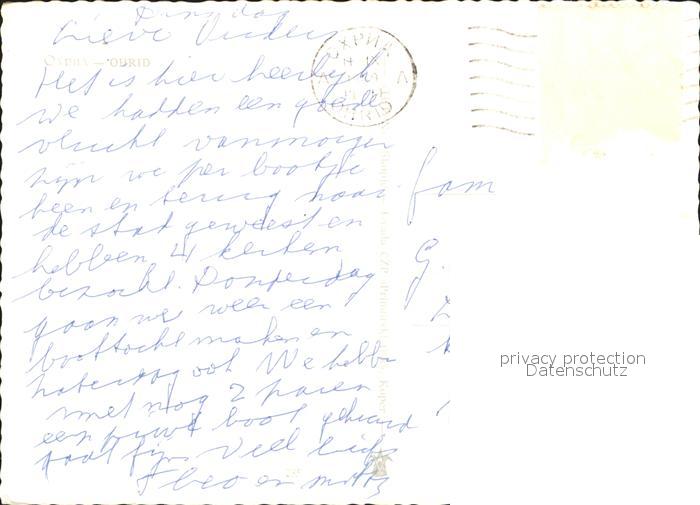 Dinsdag
Lieve Ouders
ОХРИД — OHRID
Het is hier heerlijk
we hadden een goede
vlucht vanmorgen
zijn we per bootje
heen en terug naar
de stad geweest en
hebben 4 kerken
bezocht. Donderdag
gaan we weer een
boottocht maken en
zaterdag ook We hebben
met nog 2 paren
een privé boot gehuurd
Veel liefs
Theo en
fam
G.
ОХРИД
OHRID
privacy protection
Datenschutz